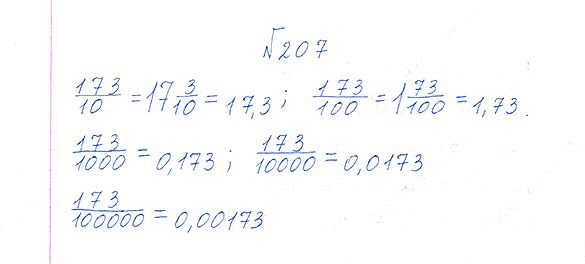 №207
173/10 = 17 3/10 = 17,3 ; 173/100 = 1 73/100 = 1,73.
173/1000 = 0,173 ; 173/10000 = 0,0173
173/100000 = 0,00173